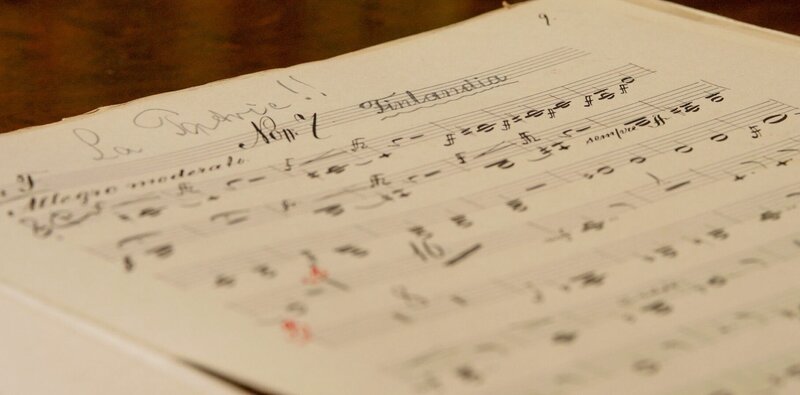 9.
La Patrie!!
No 7 Finlandia
Allegro moderato
16
8